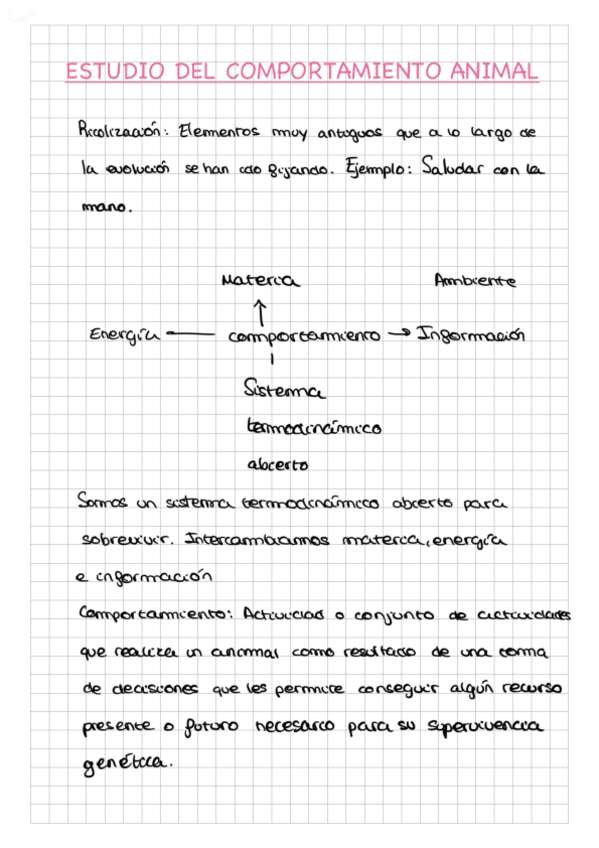 ESTUDIO DEL COMPORTAMIENTO ANIMAL
Ritualización: Elementos muy antiguos que a lo largo de
la evolución se han ido fijando. Ejemplo: Saludar con la
mano.
Materia Ambiente
↑
Energía — comportamiento → Información
Sistema
termodinámico
abierto
Somos un sistema termodinámico abierto para
sobrevivir. Intercambiamos materia, energía
e información
Comportamiento: Actividad o conjunto de actividades
que realiza un animal como resultado de una toma
de decisiones que les permite conseguir algún recurso
presente o futuro necesario para su supervivencia
genética.